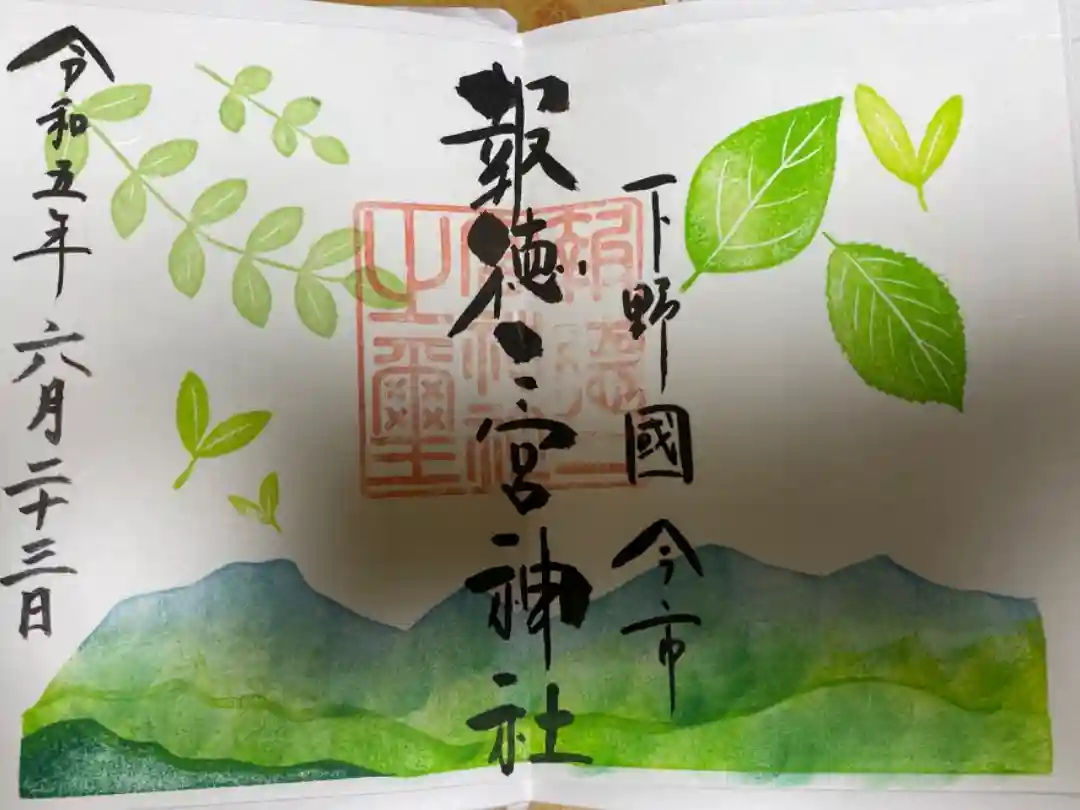 下野國 今市
報徳二宮神社
報徳二宮神社之璽
令和五年六月二十三日